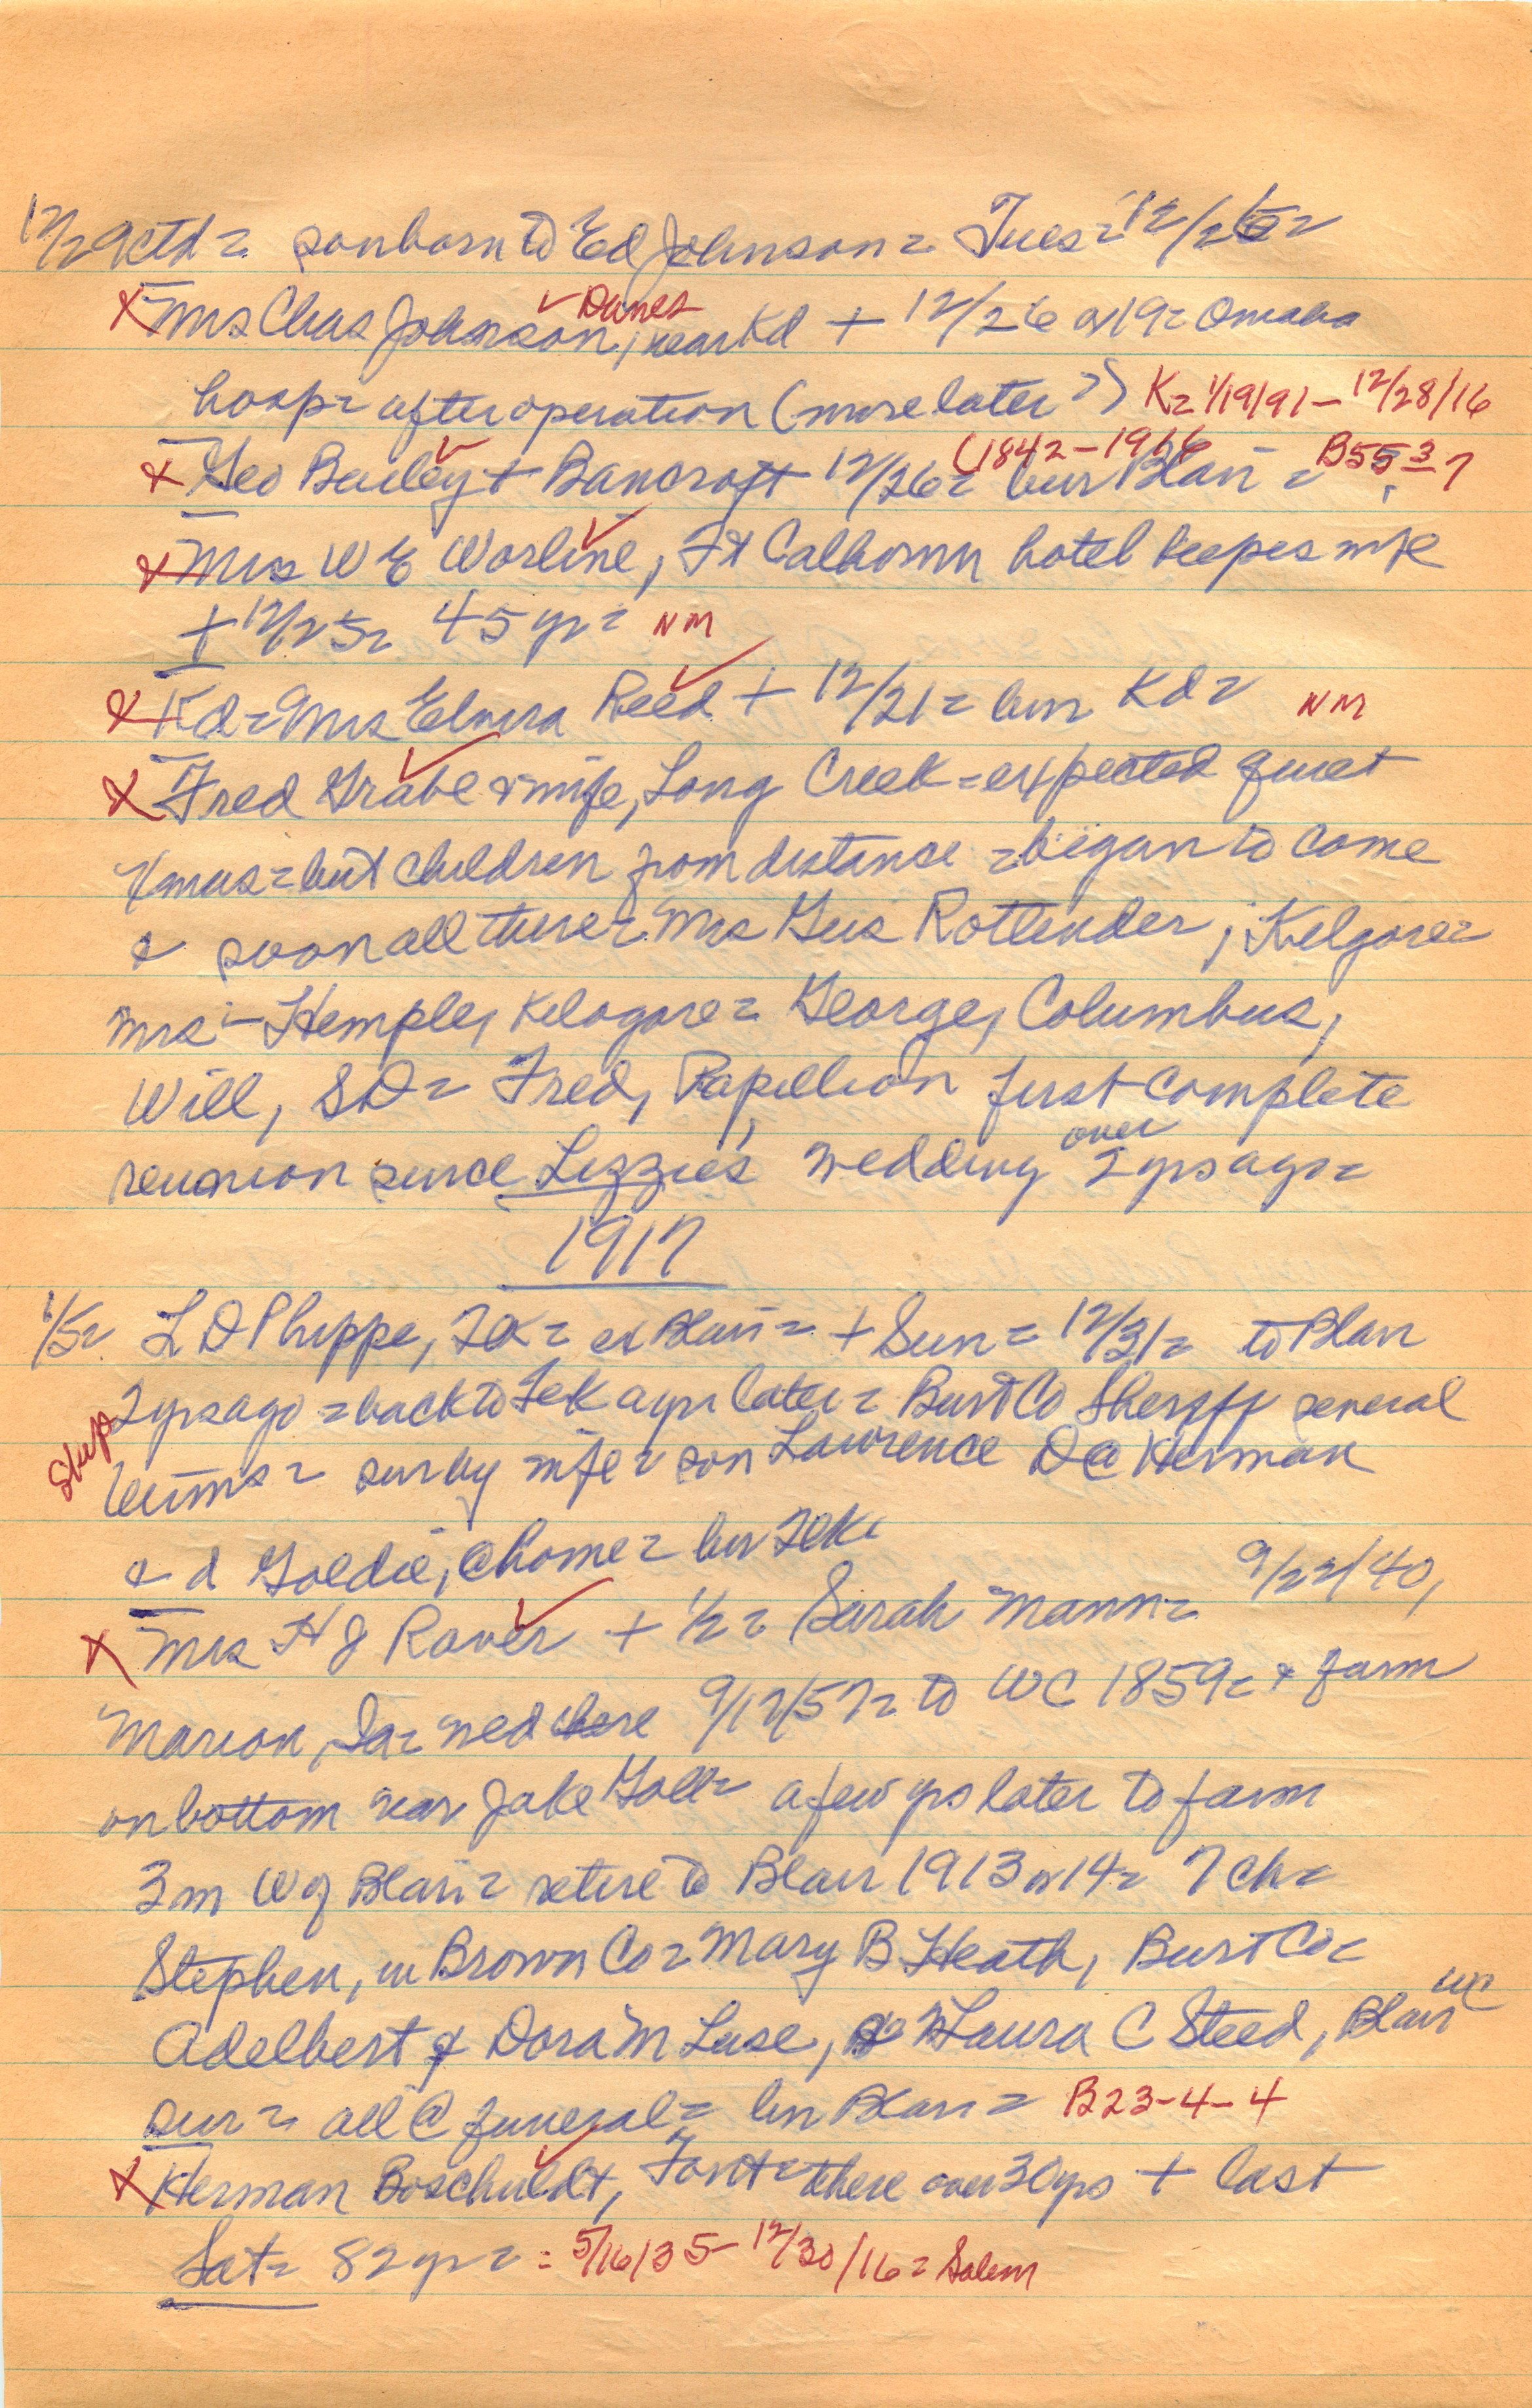 12/29 ctd = son born to Ed Johnson = Tues = 12/26 =
x Mrs Chas Johnson, near Kd + 12/26 or 19 = Omaha
✓ Danes
hosp = after operation (more later ?) K = 1/19/91 – 12/28/16
(1842 – 1916 B55-3-7
x Geo Bailey + Bancroft 12/26 = bur Blair =
x Mrs W E Worline, Ft Calhoun hotel keepes wife
+ 12/25 = 45 yr = NM
x Kd = Mrs Elmira Reed + 12/21 = bur Kd = NM
x Fred Grabe & wife, Long Creek = expected quiet
Xmas = but children from distance = began to come
& soon all there = Mrs Gus Rottender, Kilgore =
Mrs – Hemple, Kilogore = George, Columbus,
Will, SD = Fred, Papillion first complete
reunion since Lizzie's wedding over 2 yrs ago =
1917
1/5 = L D Phipps, TeK = ex Blair = + Sun = 12/31 = to Blair
2 yrs ago = back to Tek a yr later = Burt Co Sheriff several
terms = sur by wife = son Lawrence D @ Herman
& d Goldie, @ home = bur Tek
x Mrs H J Raver + 1/2 = Sarah Mann = 9/22/40,
Marion, Ia = wed there 9/17/57 = to WC 1859 = & farm
on bottom near Jake Goll = a few yrs later to farm
3 m W of Blair = retire to Blair 1913 or 14 = 7 ch =
Stephen, in Brown Co = Mary B Heath, Burt Co =
Adelbert & Dora M Lase, Laura C Steed, Blair WC
sur = all @ funeral = bur Blair = B23-4-4
x Herman Boschuldt, Font = there over 30 yrs + last
Sat = 82 yr = : 5/16/35 – 12/30/16 = Salem